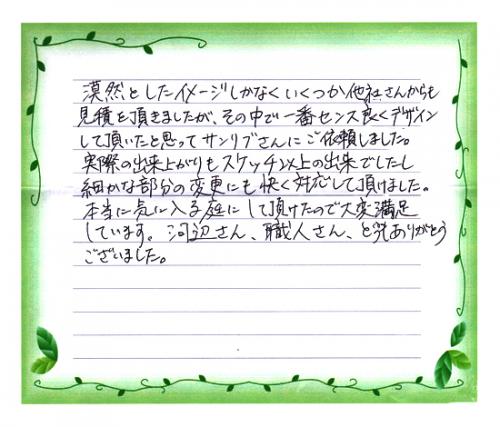 漠然としたイメージしかなくいくつか他社さんからも
見積を頂きましたが、その中で一番センス良くデザイン
して頂いたと思ってサンリブさんにご依頼しました。
実際の出来上がりもスケッチ以上の出来でしたし
細かな部分の変更にも快く対応して頂けました。
本当に気に入る庭にして頂けたので大変満足
しています。河辺さん、職人さん、ありがとう
ございました。